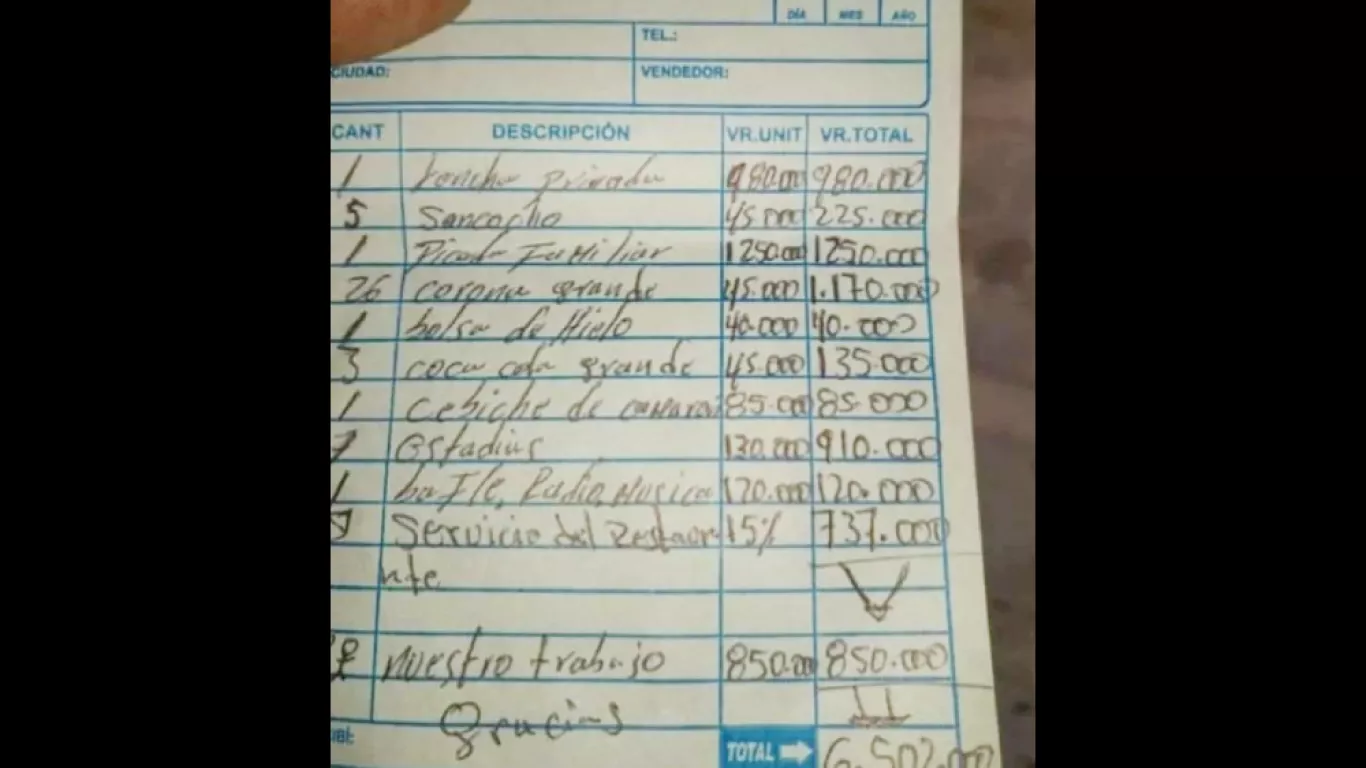 DÍA MES AÑO
TEL.:
CIUDAD: VENDEDOR:
CANT DESCRIPCIÓN VR.UNIT VR.TOTAL
1 Lancha privada 980.000 980.000
5 Sancocho 45.000 225.000
1 Picada Familiar 1250.000 1250.000
26 corona grande 45.000 1.170.000
1 bolsa de Hielo 40.000 40.000
3 coca cola grande 45.000 135.000
1 Cebiche de camaron 85.000 85.000
7 estadias 130.000 910.000
1 bafle, Radio, Musica 120.000 120.000
Servicio del Restaura 15% 737.000
nte
nuestro trabajo 850.000 850.000
gracias
TOTAL 6.502.000